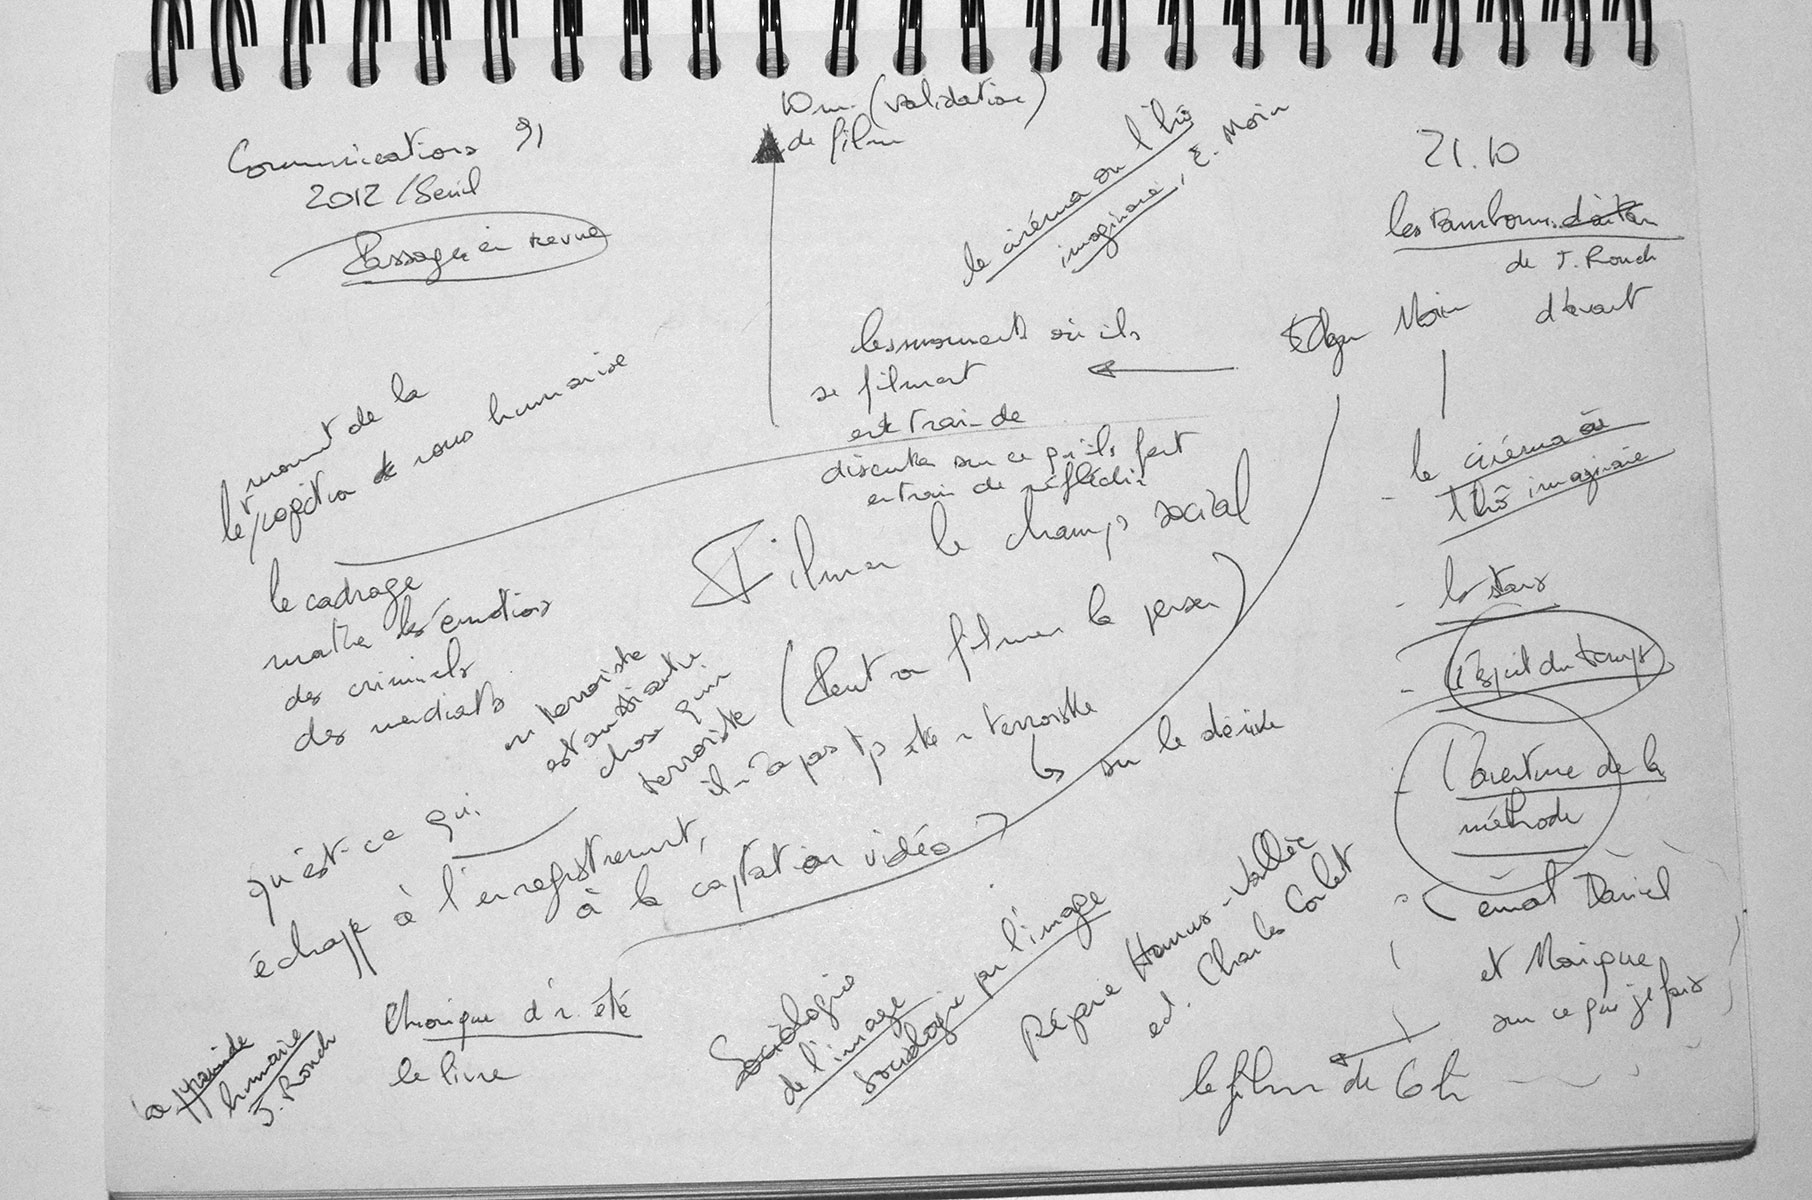 Communications 91
2012 / Seuil
Passages en revue
10 mn (validation)
de film
le cinéma ou l'hô
imaginaire, E. Morin
21.10
les tambours d'avant
de J. Rouch
d'avant
Edgar Morin
les moments où ils
se filment
en train de
discuter sur ce qu'ils font
en train de réfléchir
le cinéma ou
l'hô imaginaire
- les stars
- l'esprit du temps
- l'aventure de la
méthode
email Daniel
et Monique
sur ce que je fais
le film de 6h
moment de la
projection nous humanise
le cadrage
maître des émotions
des criminels
des mendiants
Filmer le champ social
(Peut-on filmer la pensée)
un terroriste
est aussi autre
chose qu'un
terroriste
il n'a pas tjs été terroriste
sur la dérive
qu'est-ce qui
échappe à l'enregistrement,
à la captation vidéo ?
Chronique d'1 été
le livre
la pyramide
humaine
J. Rouch
Sociologie
de l'image
sociologie par l'image
Réjane Hamus-Vallée
ed. Charles Corlet